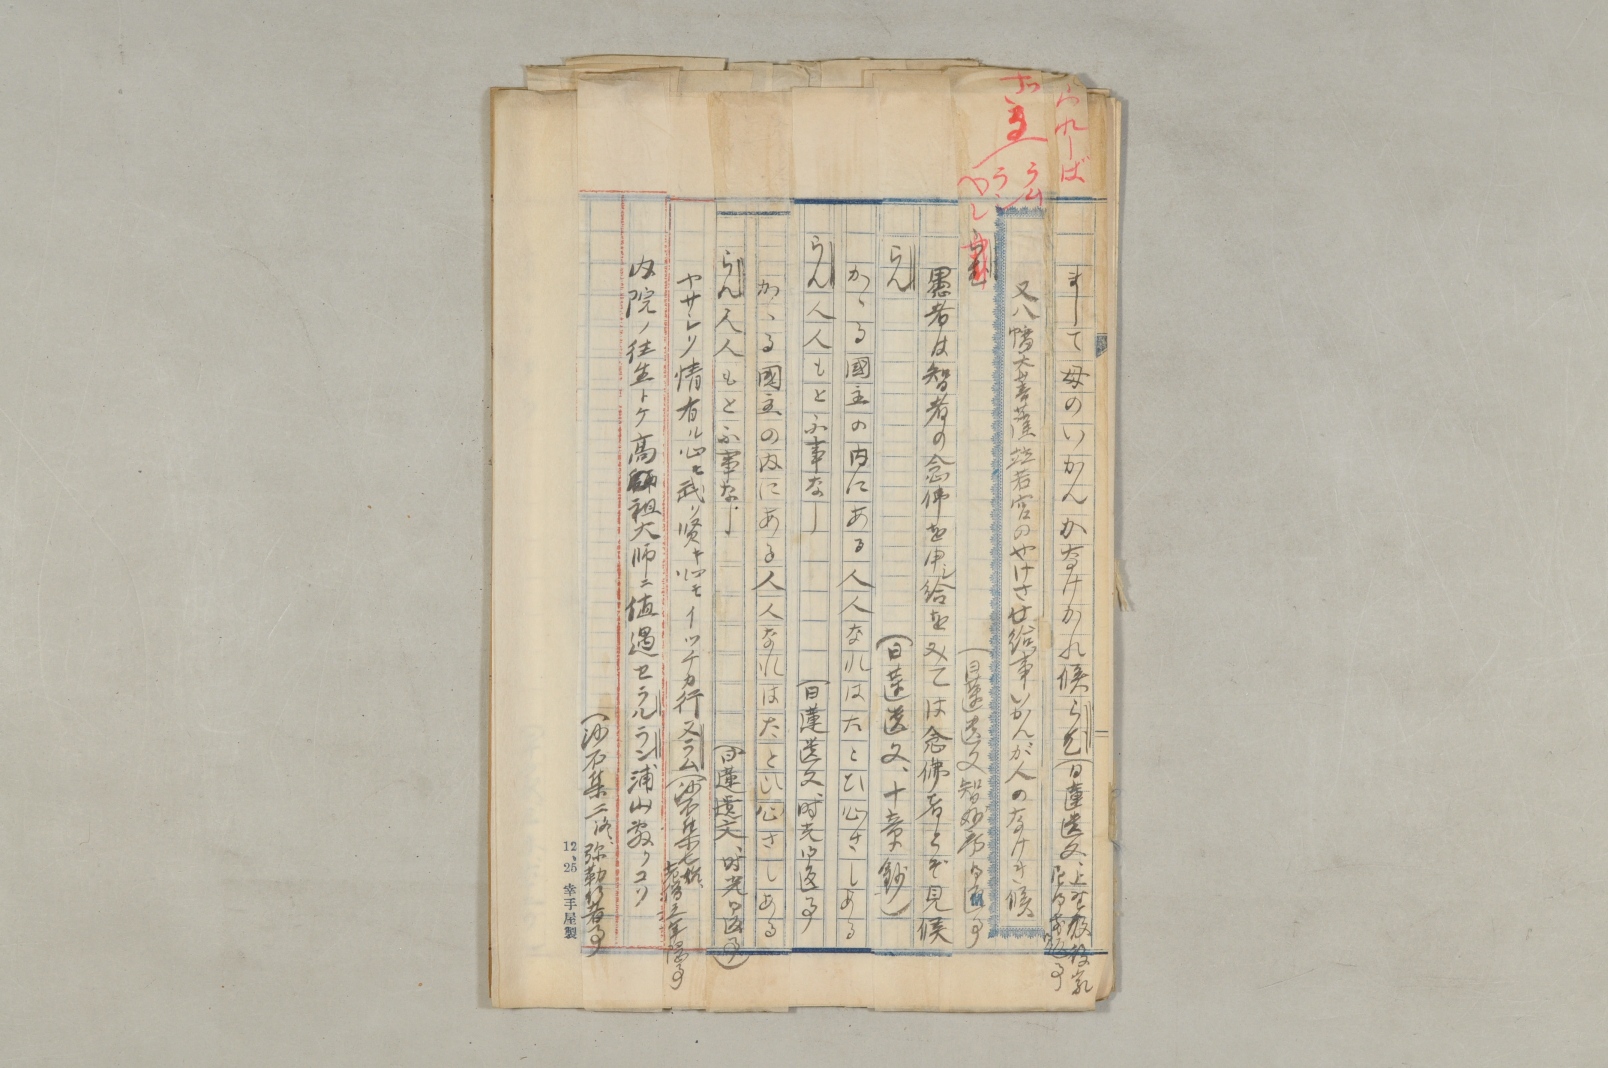 られーば
ラム
ラン
べし
まして母のいかんかなけかれ候らむ(日蓮遺文、上野殿後家
尼御前御返事
又八幡大菩薩並若宮のやけさせ給事いかんが人のなけき候
らむ
(日蓮遺文智妙房御返事
愚者は智者の念仏を申し給を みては念佛者とぞ見候
らん
(日蓮遺文、十章鈔)
かゝる國主の内にある人人なれはたとひ心さしある
らん人人もと不事なし
(日蓮遺文、時光御返事
かゝる國主の内にある人人なれはたとひ心さしある
らん人人もと不事なし
(日蓮遺文、時光御返事)
ヤサシク情有ル心モ武ク賢キ心モイツチカ行
ヌラム(沙石集
内院ノ往生トケ高祖大師ニ値遇セラルラン浦山敷クコソ
(沙石集二ノ八、弥勒行者事
12、25 幸手屋製